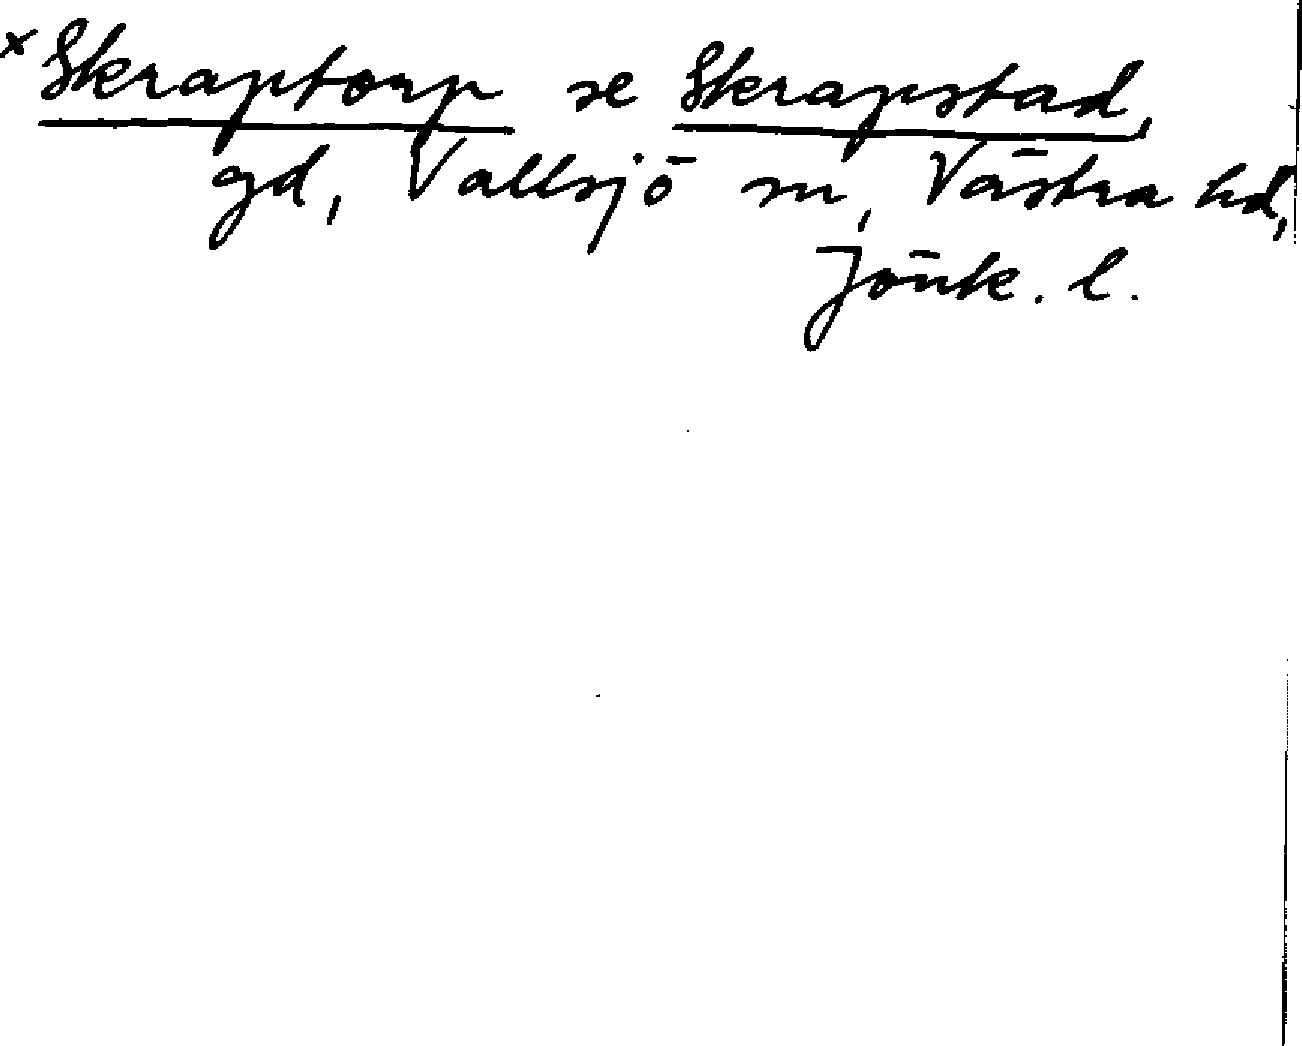 x Skraptorp se Skrapstad,
gd, Vallsjö sn, Västra hd,
Jönk. l.